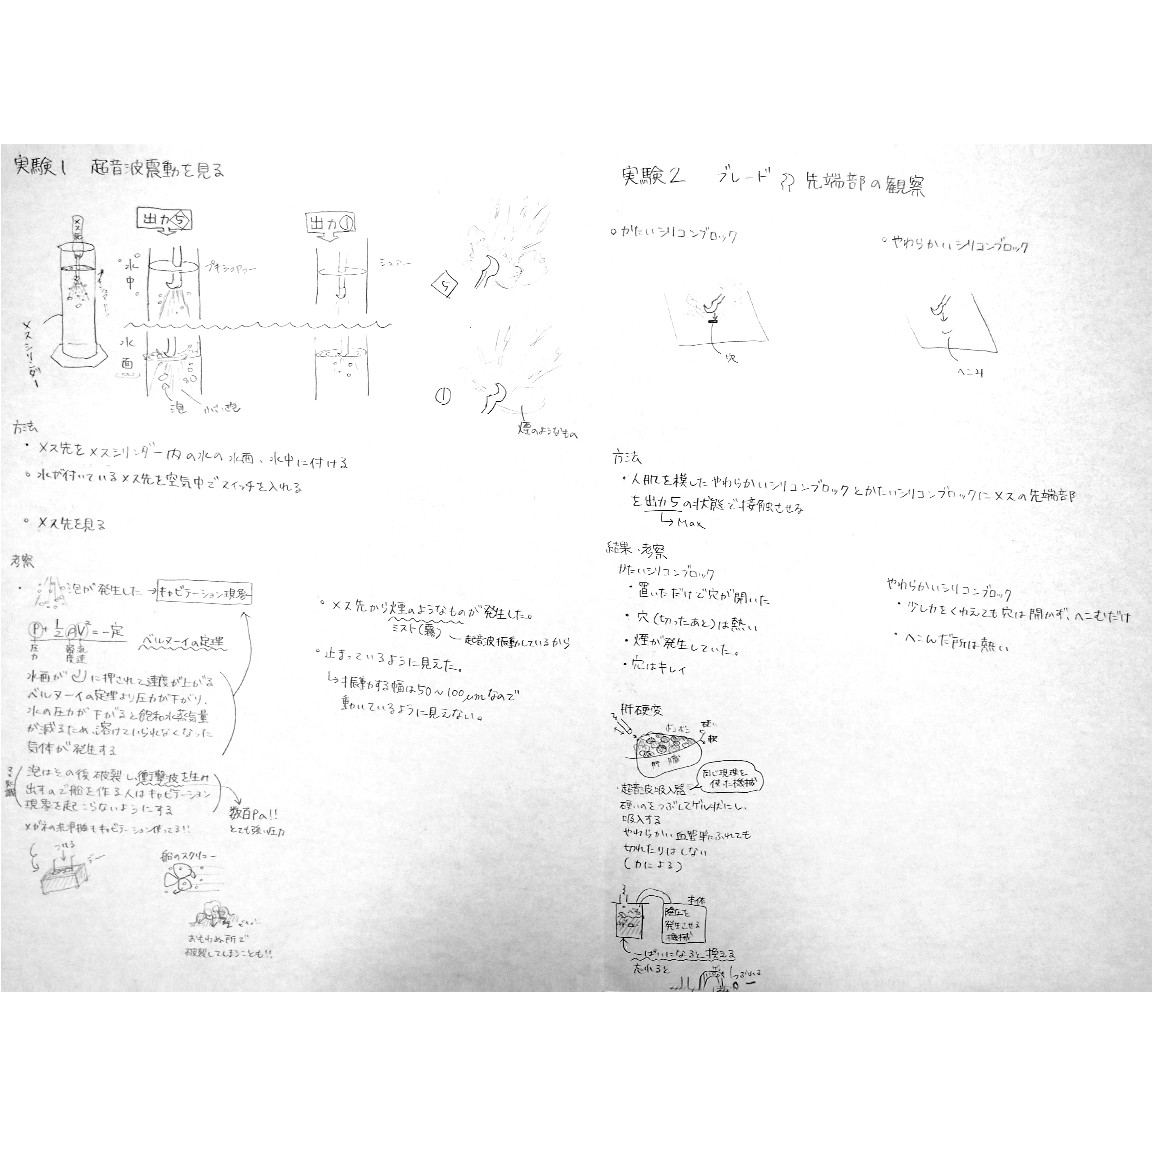 実験1 超音波震動を見る
出力⑤
出力①
メス先
水中
プキシュアァー
シュアァー
メスシリンダー
水面
泡
5
1
煙のようなもの
方法
・メス先をメスシリンダー内の水の水面、水中に付ける
○水が付いているメス先を空気中でスイッチを入れる
○メス先を見る
考察
・泡が発生した→キャビテーション現象
P+½ρV²=一定 ベルヌーイの定理
圧力 密度 流速
水面がに押されて速度が上がる
ベルヌーイの定理より圧力が下がり、
水の圧力が下がると飽和水蒸気量
が減るため、溶けていられなくなった
気体が発生する
マメ知識
泡はその後破裂し、衝撃波を生み
出すので船を作る人はキャビテーション
現象を起こらないようにする
数百Pa!!
とても強い圧力
メガネの洗浄機もキャビテーション使ってる!!
船のスクリュー
おもわぬ所で
破裂してしまうことも!!
○メス先から煙のようなものが発生した。
ミスト(霧)
超音波振動しているから
・止まっているように見えた。
↳振動する幅は50~100μmなので
動いているように見えない。
実験2 ブレード 先端部の観察
○かたいシリコンブロック
○やわらかいシリコンブロック
穴
ヘコみ
方法
・人肌を模したやわらかいシリコンブロックとかたいシリコンブロックにメスの先端部
を出力5の状態で接触させる
↳Max
結果・考察
かたいシリコンブロック
・置いただけで穴が開いた
・穴(切ったあと)は熱い
・煙が発生していた。
・穴はキレイ
やわらかいシリコンブロック
・少し力をくわえても穴は開かず、へこむだけ
・へこんだ所は熱い
肝硬変
硬い
肝臓
同じ現象を
使った機械
・超音波吸入器
硬いのをつぶしてゲル状にし、
吸入する
やわらかい血管等にふれても
切れたりはしない
(力による)
本体
陰圧を
発生させる
機械
いっぱいになると換える
忘れると